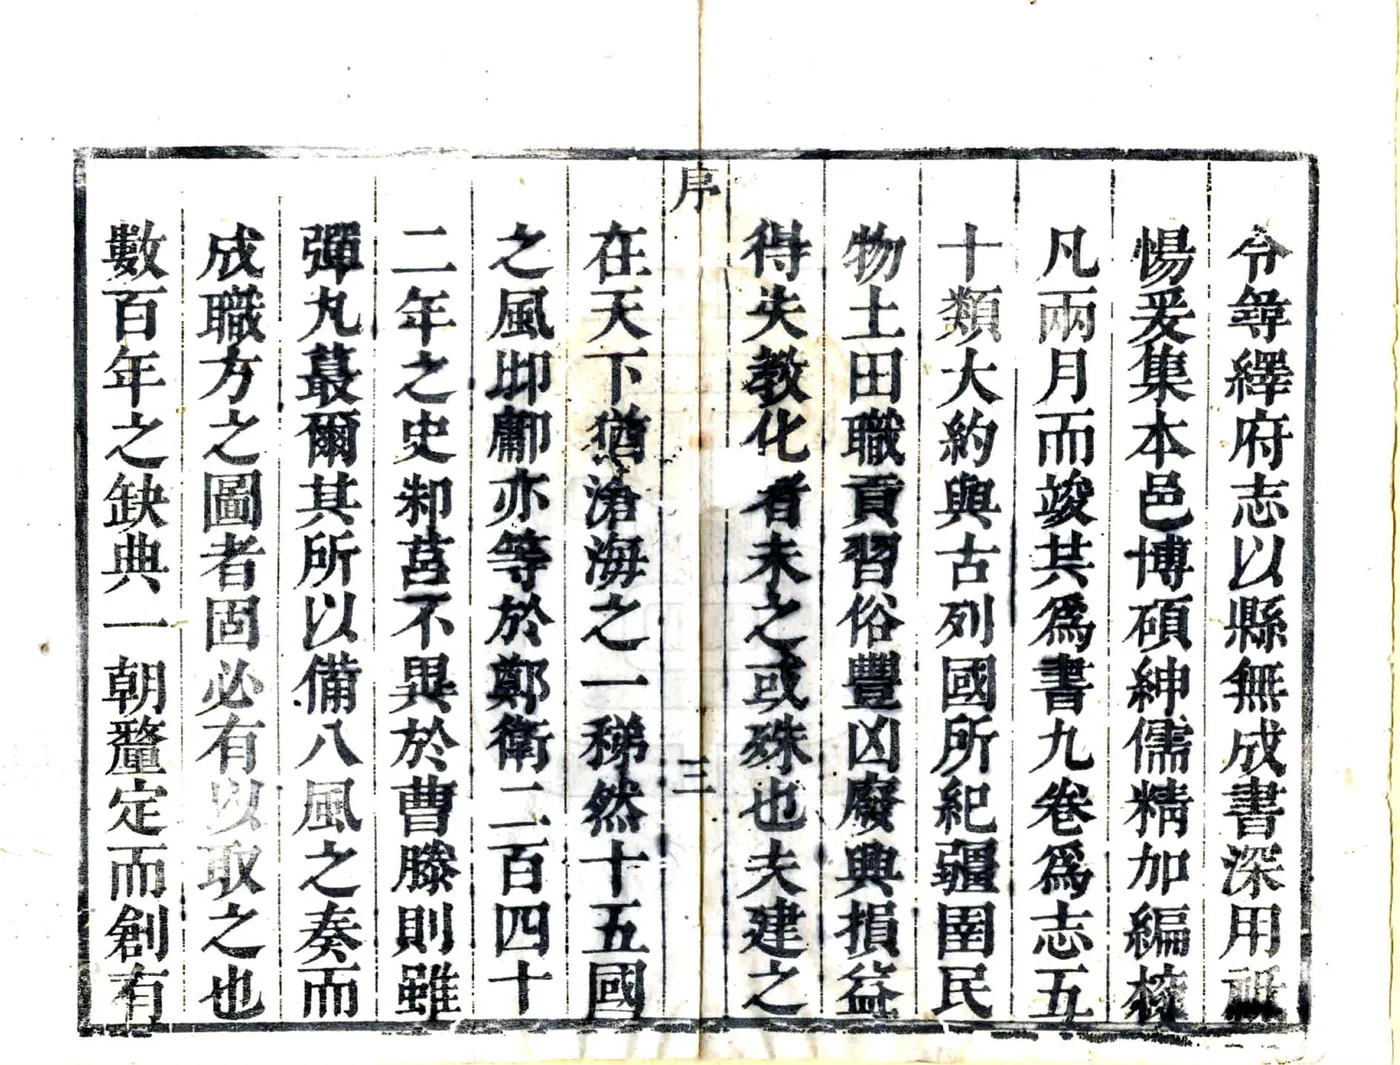 令尋繹府志以縣無成書深用祗
惕爰集本邑博碩紳儒精加編摭
凡兩月而竣共為書九卷為志五
十類大約與古列國所紀疆圉民
物土田職貢習俗豐凶廢興損益
得失教化者未之或殊也夫建之
序
三
在天下猶滄海之一稊然十五國
之風邶鄘亦等於鄭衛二百四十
二年之史邾莒不異於曹滕則雖
彈丸蕞爾其所以備八風之奏而
成職方之圖者固必有以取之也
數百年之缺典一朝釐定而創有